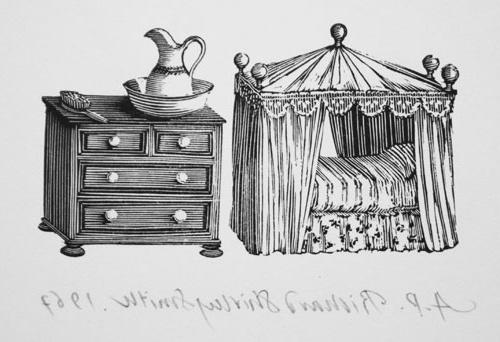 A.P. Richard Shirley Smith. 1967